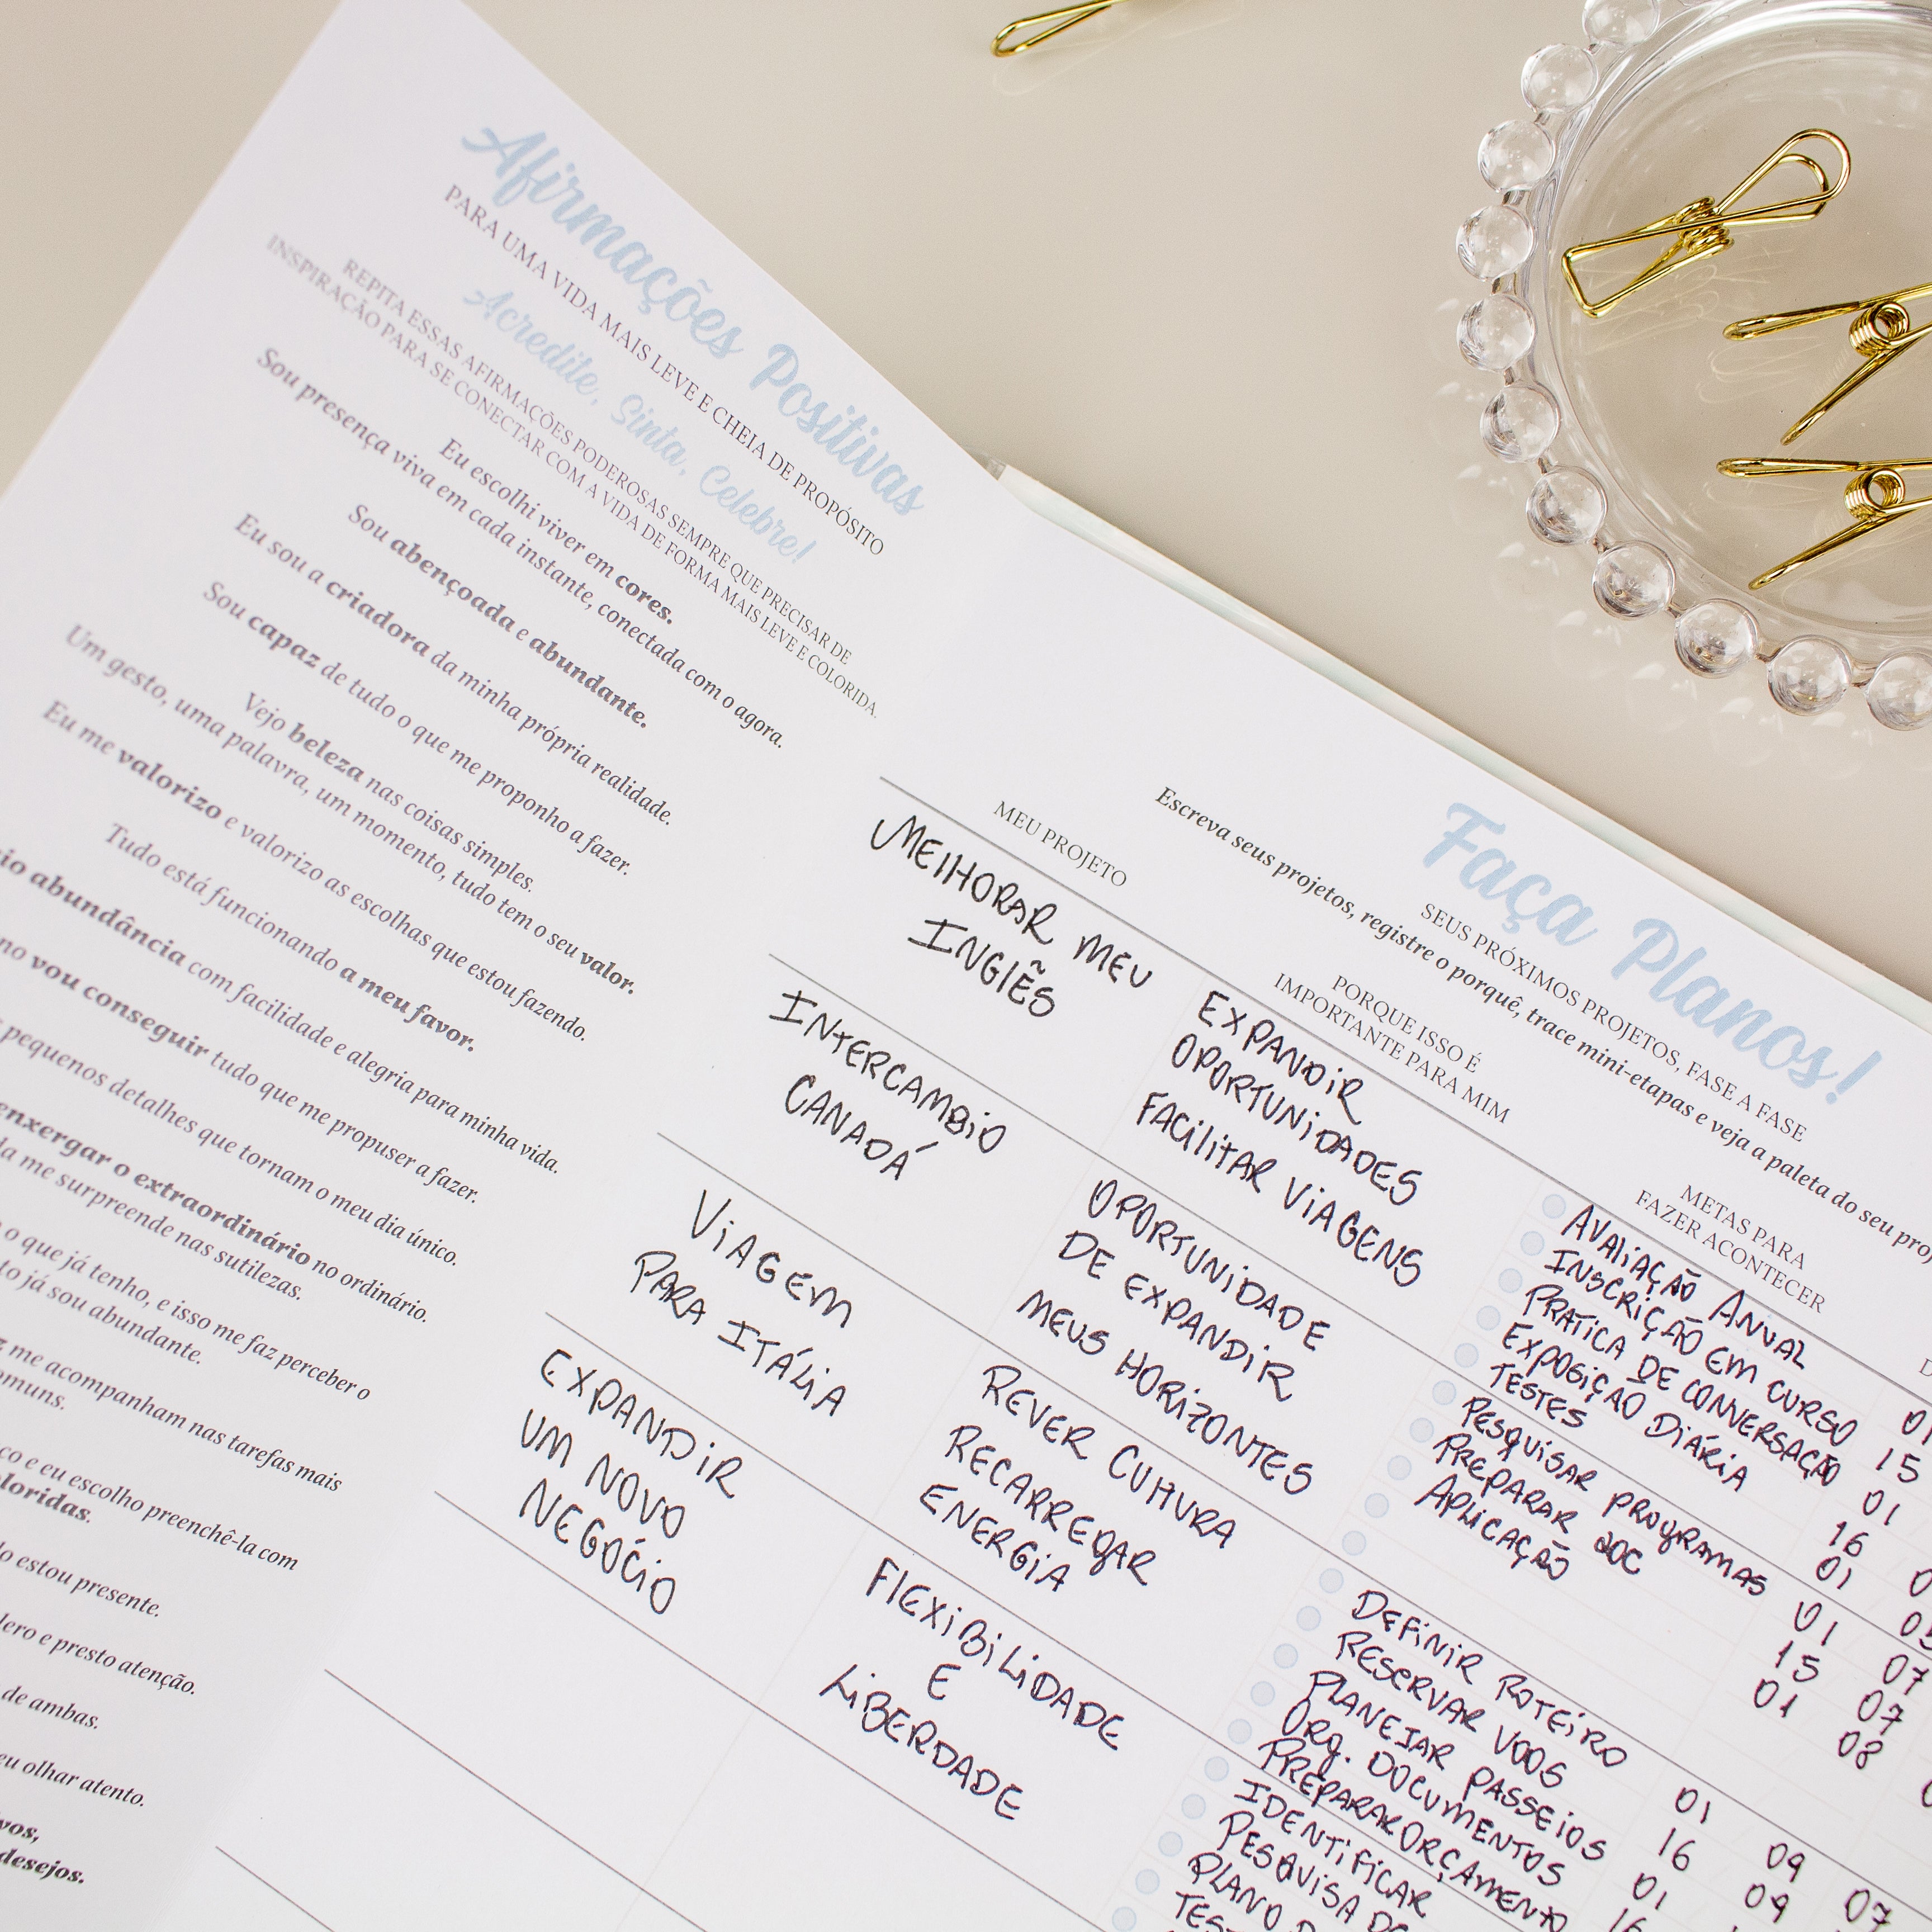 Afirmações Positivas
PARA UMA VIDA MAIS LEVE E CHEIA DE PROPÓSITO
Acredite, Sinta, Celebre!
REPITA ESSAS AFIRMAÇÕES PODEROSAS SEMPRE QUE PRECISAR DE
INSPIRAÇÃO PARA SE CONECTAR COM A VIDA DE FORMA MAIS LEVE E COLORIDA.
Eu escolhi viver em cores.
Sou presença viva em cada instante, conectada com o agora.
Sou abençoada e abundante.
Eu sou a criadora da minha própria realidade.
Sou capaz de tudo o que me proponho a fazer.
Vejo beleza nas coisas simples.
Um gesto, uma palavra, um momento, tudo tem o seu valor.
Eu me valorizo e valorizo as escolhas que estou fazendo.
Tudo está funcionando a meu favor.
abundância com facilidade e alegria para minha vida.
vou conseguir tudo que me propuser a fazer.
pequenos detalhes que tornam o meu dia único.
enxergar o extraordinário no ordinário.
me surpreende nas sutilezas.
o que já tenho, e isso me faz perceber o
já sou abundante.
me acompanham nas tarefas mais
e eu escolho preenchê-la com
estou presente.
e presto atenção.
de ambas.
olhar atento.
desejos.
Faça Planos!
SEUS PRÓXIMOS PROJETOS, FASE A FASE
Escreva seus projetos, registre o porquê, trace mini-etapas e veja a paleta do seu
MEU PROJETO
PORQUE ISSO É
IMPORTANTE PARA MIM
METAS PARA
FAZER ACONTECER
MElHORAR MEU
INGlÊS
EXPANDiR
OPORTUNiDADES
FACilitAR ViAGENS
AVAliAÇÃO ANUAL
INSCRiÇÃO EM CURSO
PRATiCA DE CONVERSAÇÃO
EXPOSiÇÃO DiÁRiA
TESTES
01
15
01
16
01
INTERCAMBiO
CANADÁ
OPORTUNiDADE
DE EXPANDiR
MEUS HORiZONTES
PESQUiSAR PROGRAMAS
PREPARAR DOC
APLiCAÇÃO
01
15 07
01 07
08
ViAGEM
PARA ITÁLiA
REVER CUlTURA
RECARREGAR
ENERGiA
DEFiNiR ROTEiRO
RESERVAR VOOS
PLANEJAR PASSEiOS
ORG. DOCUMENTOS
PREPARAR ORÇAMENTO
01
16 09
01 09
07
EXPANDiR
UM NOVO
NEGÓCiO
FlEXiBiLiDADE
E
LiBERDADE
IDENTiFiCAR
PESQUiSA
PLANO